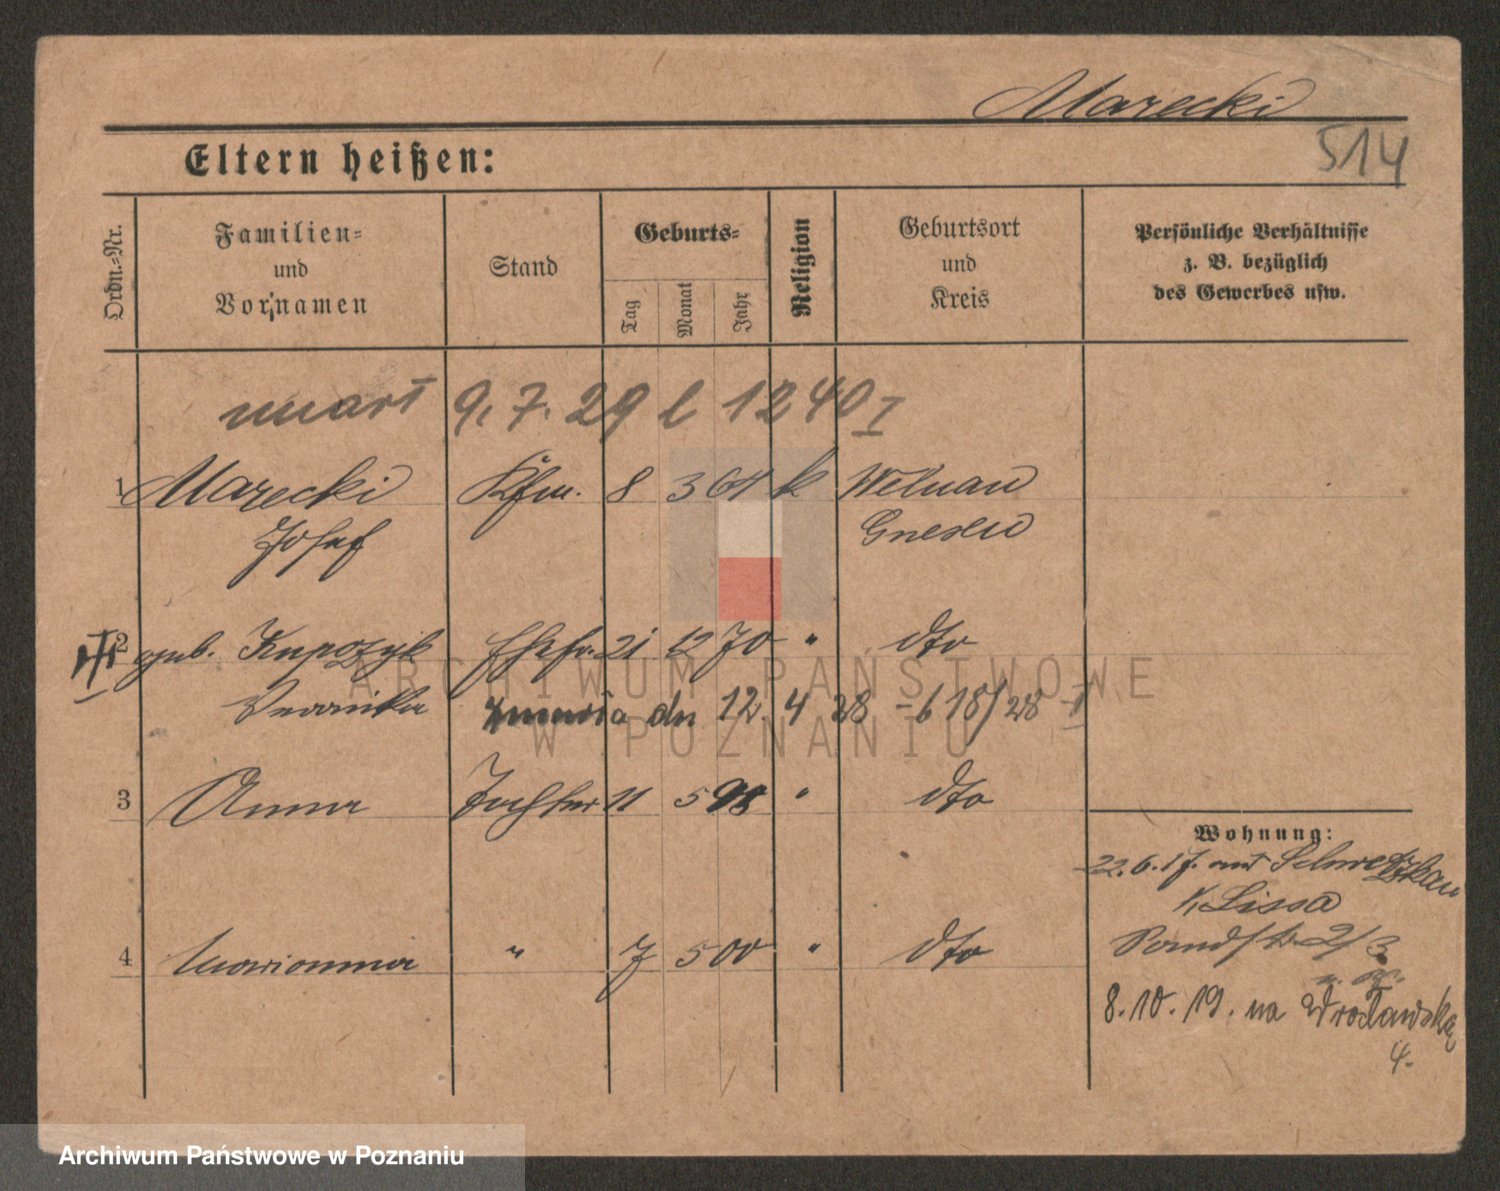 Marecki
514
Eltern heißen:
Ordn.-Nr.
Familien-
und
Vor-/namen
Stand
Geburts-
Tag
Monat
Jahr
Religion
Geburtsort
und
Kreis
Persönliche Verhältnisse
z. B. bezüglich
des Gewerbes usw.
umarł 9. 7. 29 l 1240 I
1 Marecki Kfm. 8 3 64 k Welnau
Josef Gnesen
2 geb. Kaposzyk Ehefr. 21 12 70 " dto
Veronika zmarła dn 12 4 28 - 618/28 - I
3 Anna Tochter 11 5 98 " dto
Wohnung:
22. 6. 17. aus Schwetzkau
K. Lissa
4 Marianna " 7 5 00 " dto
Sandstr. 2/3
8. 10. 19. na Wrocławską
4.
ARCHIWUM PAŃSTWOWE
W POZNANIU
Archiwum Państwowe w Poznaniu